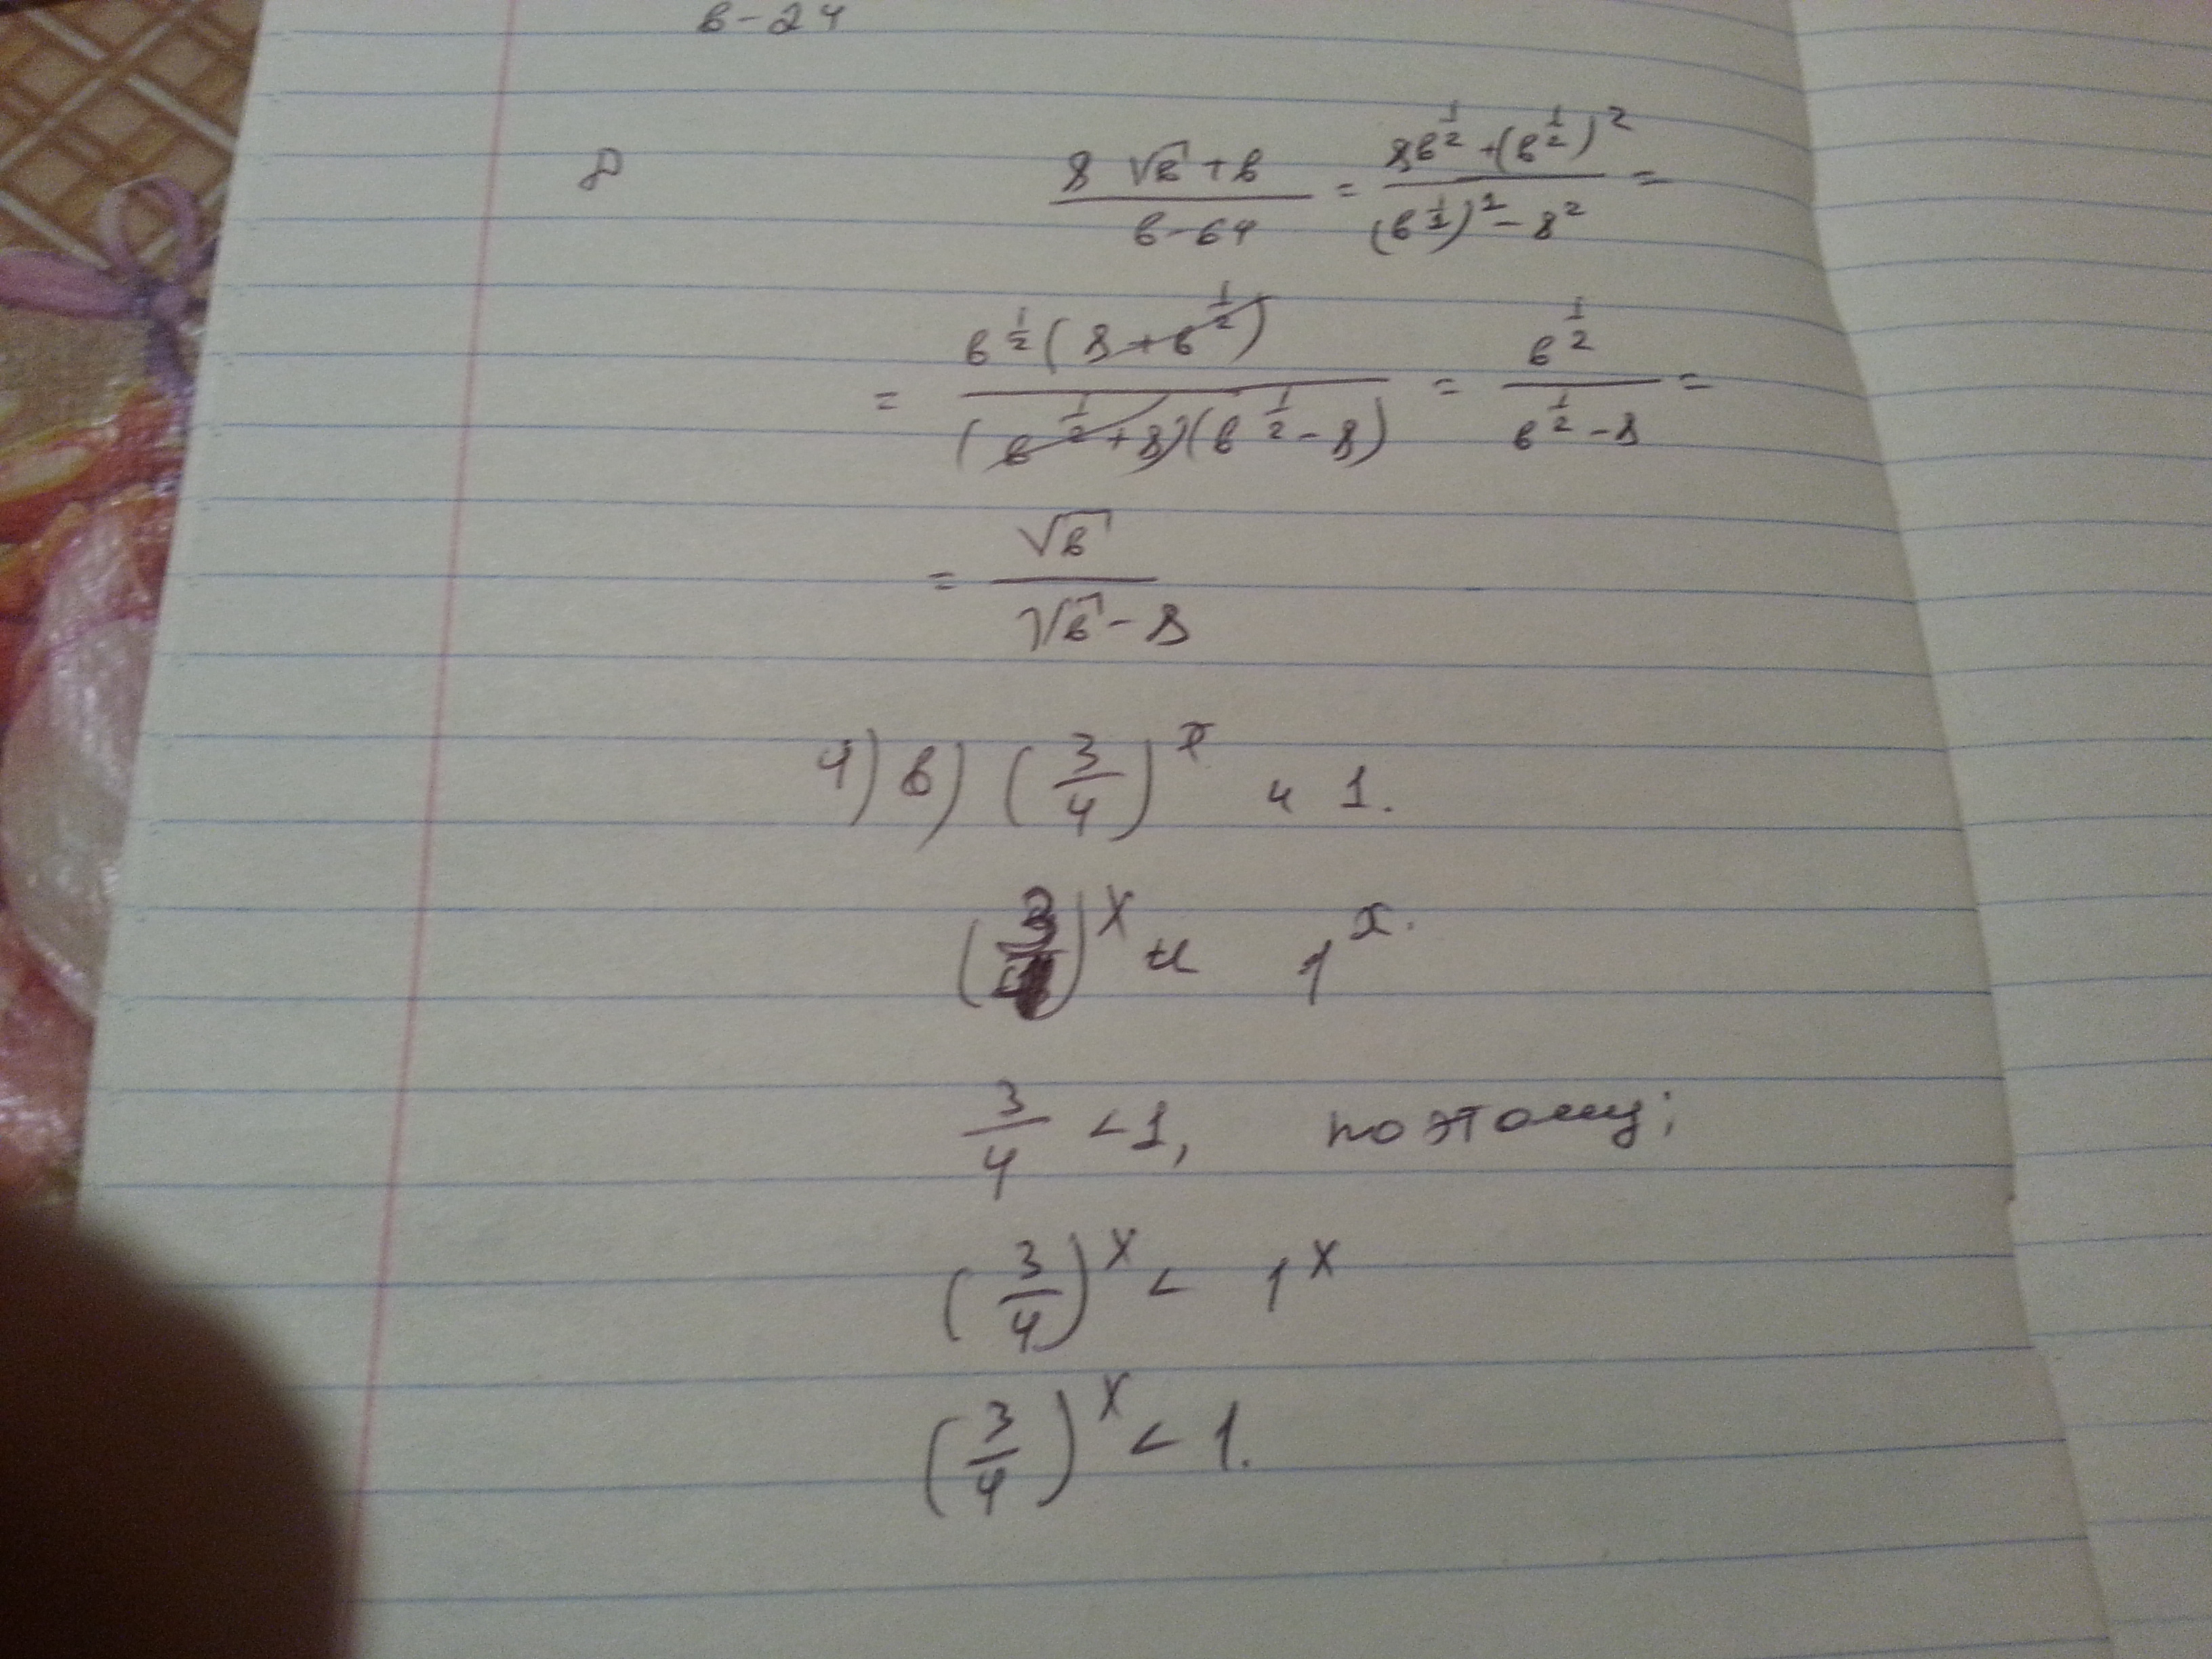 в-24
8√в+в / в-64 = 8в^(1/2)+(в^(1/2))^2 / (в^(1/2))^2-8^2 =
= в^(1/2)(8+в^(1/2)) / (в^(1/2)+8)(в^(1/2)-8) = в^(1/2) / в^(1/2)-8 =
= √в / √в-8
4) в) (3/4)^x и 1.
(3/4)^x и 1^x.
3/4 <1, поэтому;
(3/4)^x < 1^x
(3/4)^x < 1.